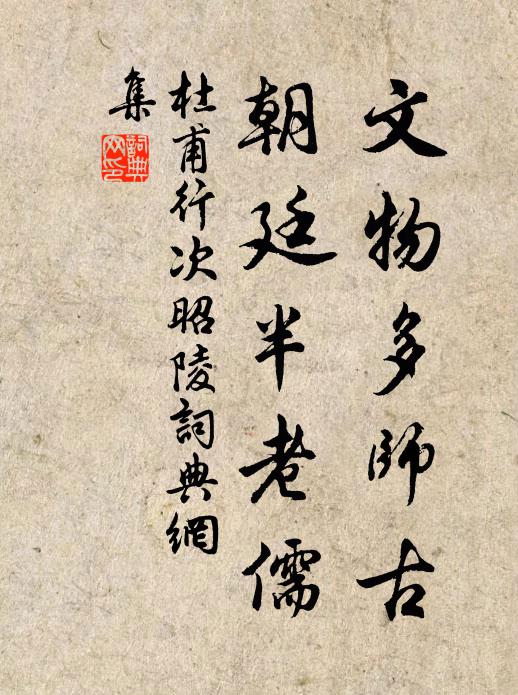 文物多師古
朝廷半老儒
杜甫行次昭陵詞典網
集
詞典
网印